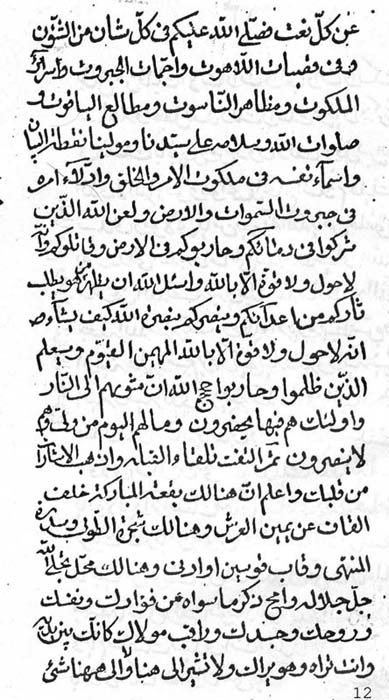 عن كلّ نعت فصلّى اللّه عليكم فى كلّ شان من الشؤن
فى قصبات اللاهوت واجمات الجبروت واسرار
الملكوت ومظاهر الناسوت ومطالع الياقوت و
صلوات اللّه وسلامه على سيّدنا ومولينا نقطة البيان
واسمآء نفسه فى ملكوت الامر والخلق وادلّاء امره
فى جبروت السّموات والارض ولعن اللّه الّذين
شركوا فى دمائكم وحاربوكم فى الارض وقاتلوكم
لا حول ولا قوّة الّا باللّه واسئل اللّه ان يظهر من يطلب
ثاركم من اعدائكم وينصركم بنصرة اللّه كيف يشآء
انّه لا حول ولا قوّة الّا باللّه المهيمن القيّوم وسيعلم
الّذين ظلموا وحاربوا حجج اللّه انّ مثويهم الى النّار
واولئك هم فيها يحضرون وما لهم اليوم من ولىّ وهم
لا ينصرون ثمّ التفت تلقاء القبلة وان هب
من قلبك واعلم انّ هنالك بقعة المباركة خلف
القاف عن يمين العرش وهنالك شجرة الطّوبى وسدرة
المنتهى وقاب قوسين او ادنى وهنالك محلّ تجلّى اللّه
جلّ جلاله وامح ذكر ما سواه عن فؤادك ونفسك
وروحك وجسدك وراقب مولاك كانّك بين يديه
وانت تراه وهو يراك ولا تشير الى هنا ولا الى ههنا شئ
12